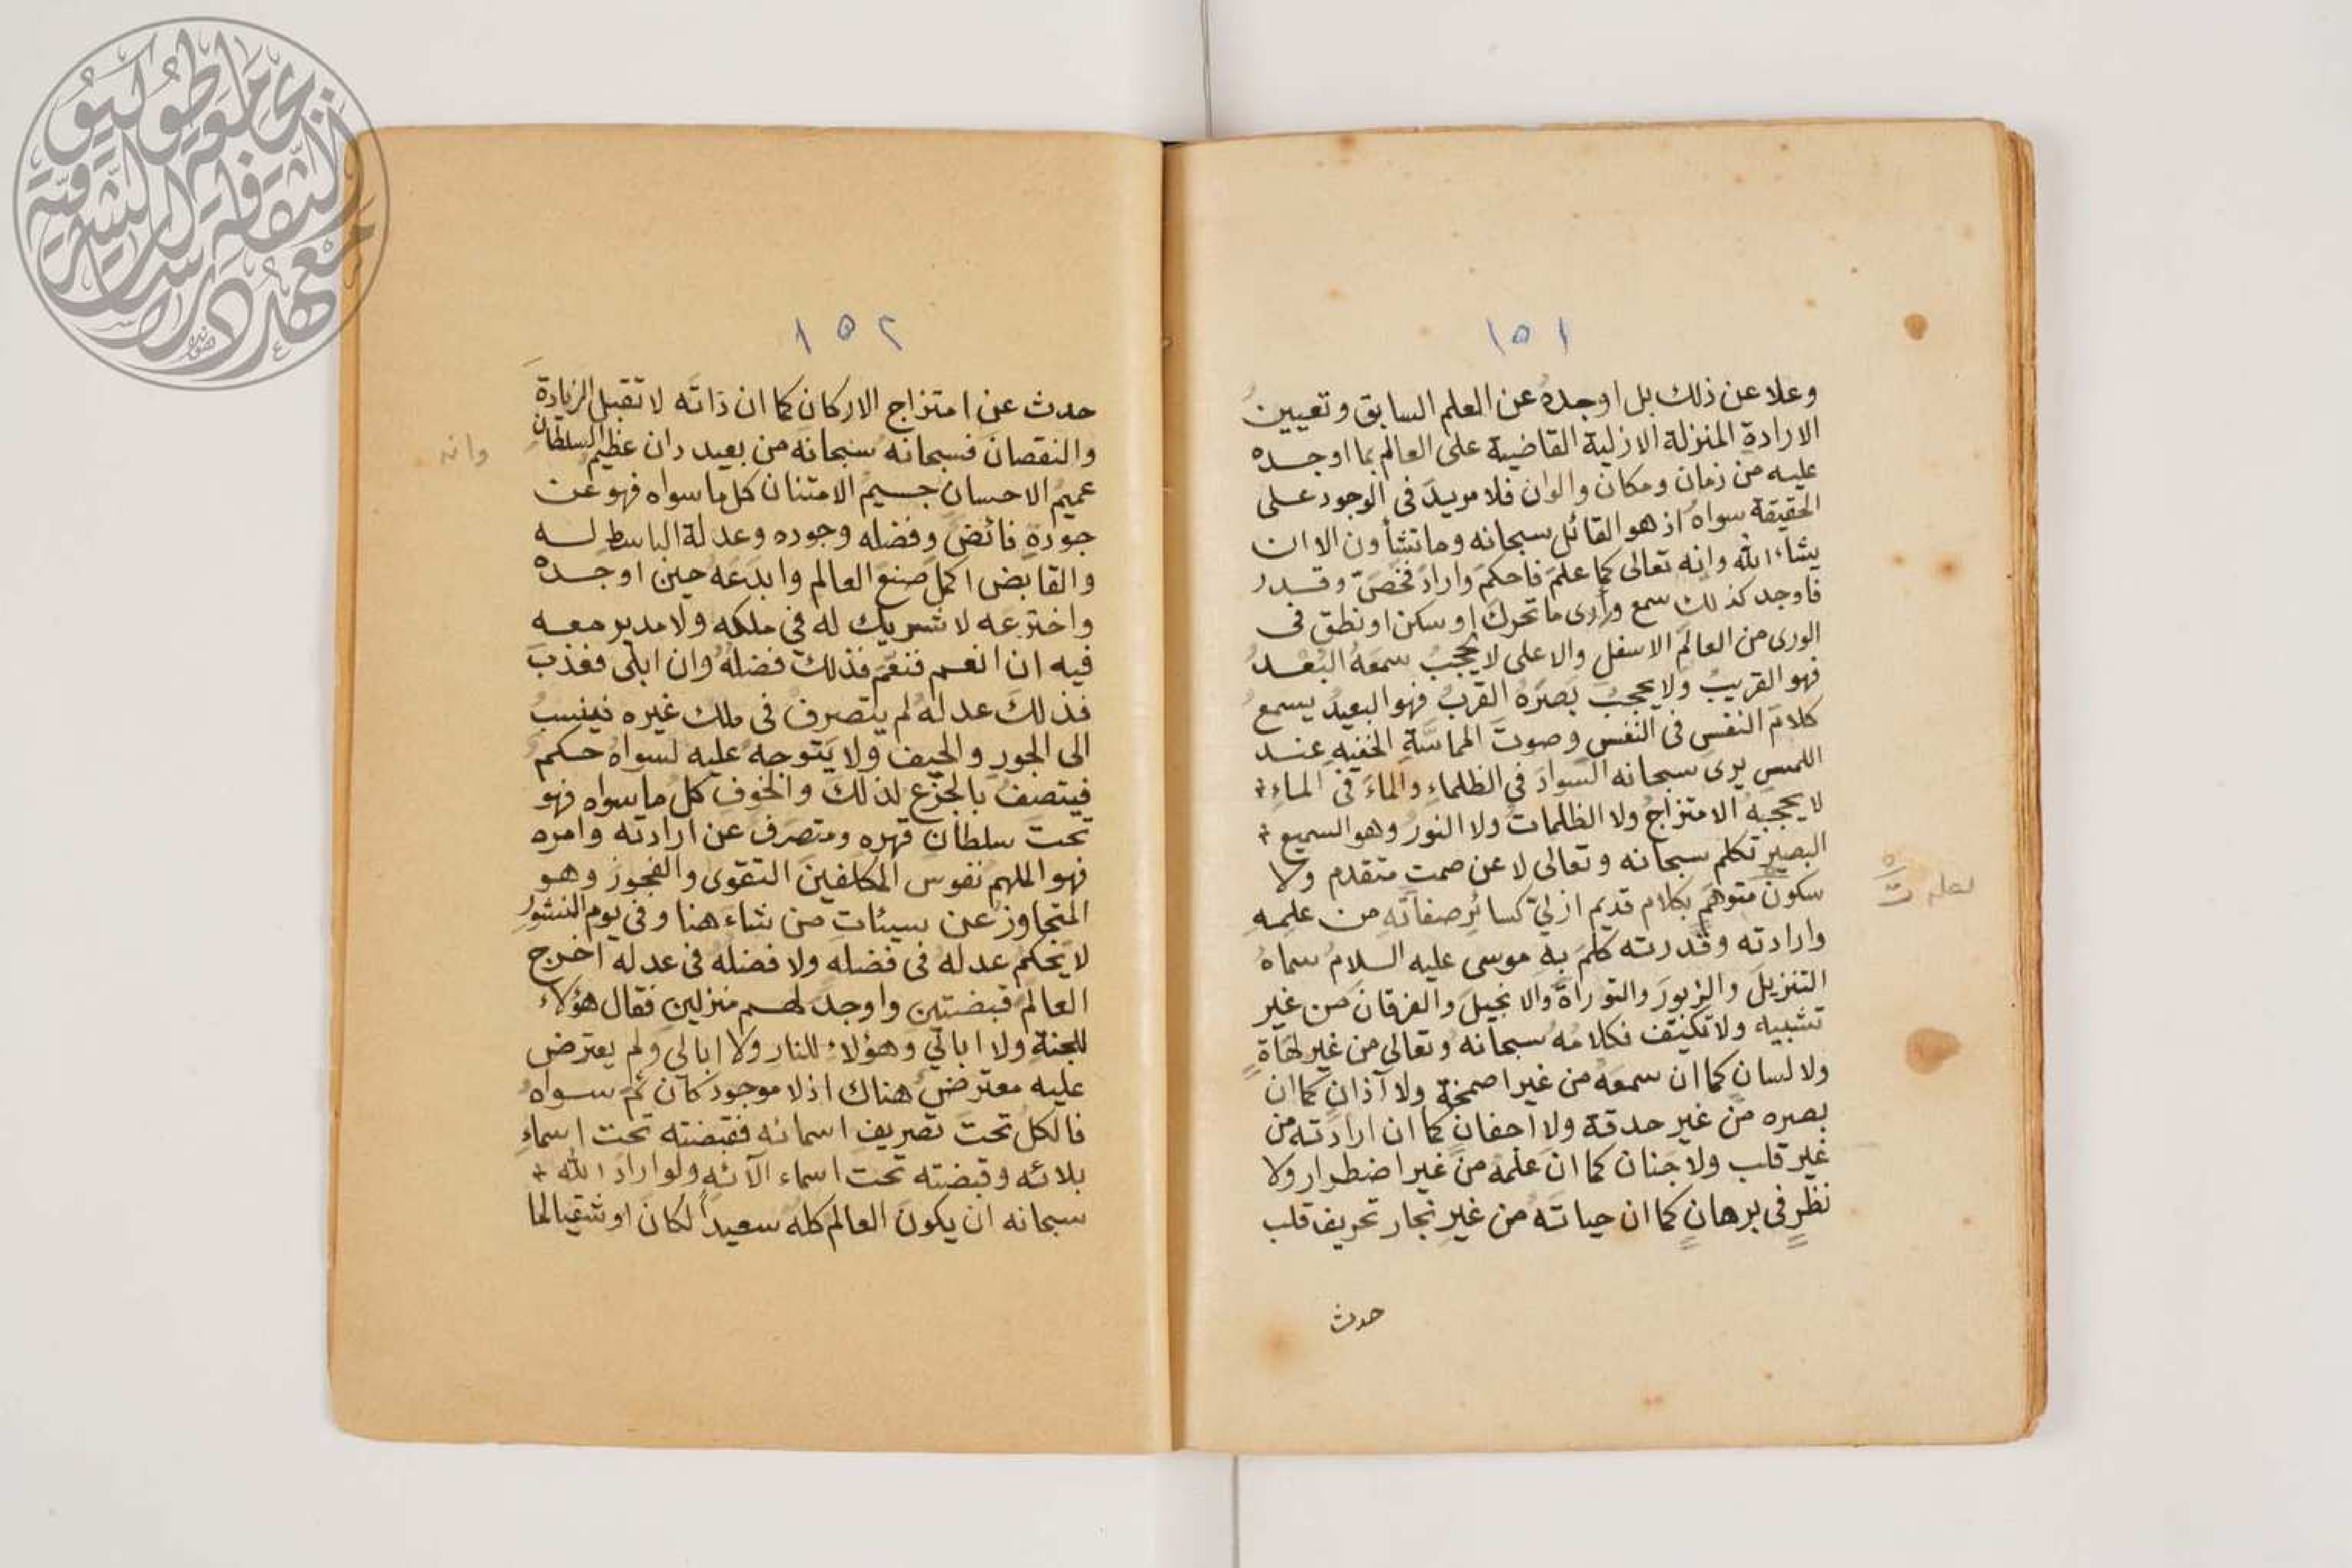 ١٥١
وعلا عن ذلك بل اوجده عن العلم السابق وتعيينُ
الارادة المنزلة الازلية القاضية على العالم بما اوجده
عليه من زمان ومكان والوان فلا مريدَ فى الوجود على
الحقيقة سواهُ اذ هو القائل سبحانه وما تشأون الا ان
يشاء الله وانه تعالى كما علمَ فاحكمَ وارادَ فخصَّ وقدر
فاوجد كذلك سمع ورأى ما تحركَ او سكن او نطق فى
الورى من العالم الاسفلِ والاعلى لا يحجبُ سمعَهُ البُعْدُ
فهو القريبُ ولا يحجبُ بصَرَهُ القربُ فهو البعيدُ يسمعُ
كلامَ النفس فى النفس وصوتَ المماسَّةِ الخفيه عند
اللمس يرى سبحانه السوادَ فى الظلماءِ والماءَ فى الماءِ
لا يحجبه الامتزاجُ ولا الظلماتُ ولا النورُ وهو السميع
البصير تكلم سبحانه وتعالى لا عن صمتٍ متقدم ولا
سكون متوهم بكلام قديم ازلي كسائرِ صفاتِه من علمِهِ
وارادته وقدرته كلمَ به موسى عليه السلامُ سماهُ
التنزيلَ والزبورَ والتوراةَ والانجيلَ والفرقانَ من غير
تشبيه ولا تكيف فكلامُه سبحانه وتعالى من غير لهاةٍ
ولا لسانٍ كما ان سمعَهُ من غير اصمخة ولا آذانٍ كما ان
بصره من غير حدقة ولا اجفانٍ كما ان ارادته من
غير قلب ولا جنان كما ان علمَهُ من غير اضطرار ولا
نظرٍ فى برهانٍ كما ان حياتَهُ من غيرِ نجار تحريف قلب
حدث
لعله ت
١٥٢
حدث عن امتزاج الاركان كما ان ذاته لا تقبل الزيادةَ
والنقصانَ فسبحانه سبحانه من بعيد دان عظيمُ السلطانِ
وانه
عميمُ الاحسانِ جسيمُ الامتنان كل ما سواه فهو عن
جوده فائضٌ وفضله وجوده وعدلة الباسط له
والقابض اكملَ صنعَ العالم وابدعَهُ حين اوجده
واخترعه لا شريك له فى ملكه ولا مدبر معه
فيه ان انعم فنعَّم فذلك فضلُهُ وان ابلى فعذبَ
فذلكَ عدله لم يتصرفْ فى ملك غيره فينسبُ
الى الجور والحيف ولا يتوجهُ عليه لسواهُ حكم
فيتصفُ بالجزع لذلك والخوفِ كل ما سواه فهو
تحت سلطان قهره ومتصَرفٌ عن ارادته وامره
فهو الملهم نفوسَ المكلفينَ التقوى والفجورَ وهو
المتجاوز عن سيئاتِ من شاءَ هنا وفى يوم النشورِ
لا يحكمُ عدلهُ فى فضلهِ ولا فضلهُ فى عدله اخرج
العالَمَ قبضتين واوجدَ لهم منزلين فقال هؤلاء
للجنة ولا ابالي وهؤلاء للنار ولا ابالي ولم يعترض
عليه معترضٌ هناك اذ لا موجود كان ثَمَّ سواهُ
فالكلُ تحت تصريف اسمائه فقبضته تحت اسماءِ
بلائه وقبضته تحت اسماء الآئهِ ولو ارادَ الله
سبحانه ان يكونَ العالم كلهُ سعيداً لكانَ او شقيا لما